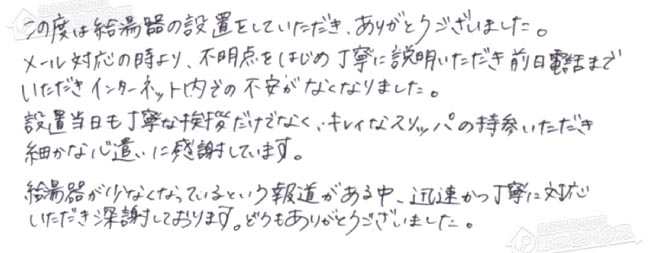 この度は給湯器の設置をしていただき、ありがとうございました。
メール対応の時より、不明点をはじめ丁寧に説明いただき前日電話まで
いただきインターネット内での不安がなくなりました。
設置当日も丁寧な挨拶だけでなく、キレイなスリッパの持参いただき
細かな心遣いに感謝しています。
給湯器が少なくなっているという報道がある中、迅速かつ丁寧に対応
いただき深謝しております。どうもありがとうございました。